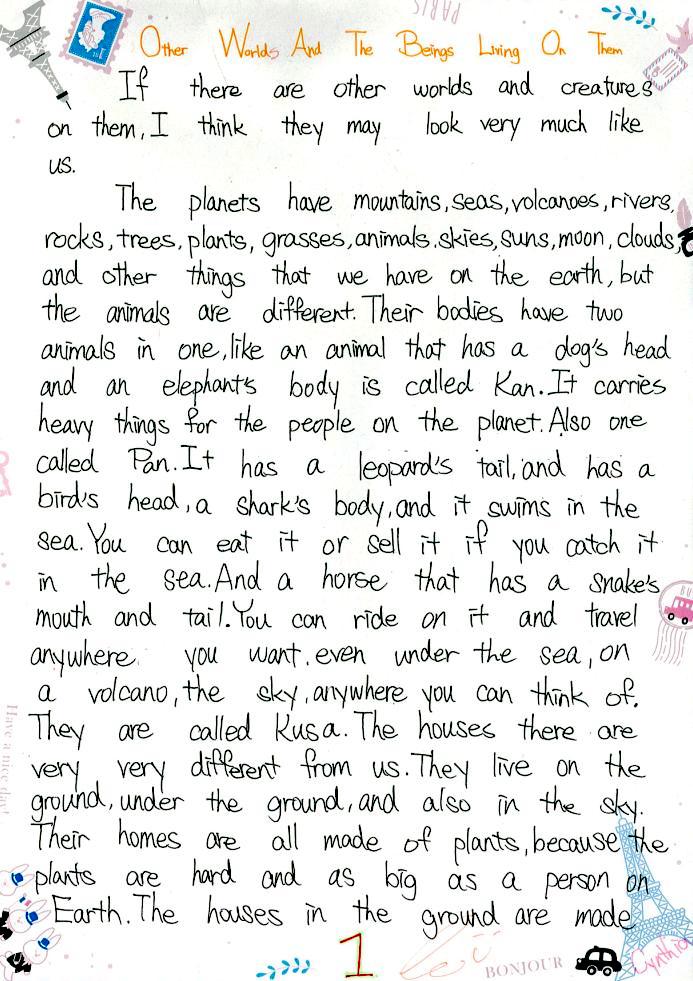 PARIS
Other Worlds And The Beings Living On Them
If there are other worlds and creatures
on them, I think they may look very much like
us.
The planets have mountains, seas, volcanoes, rivers,
rocks, trees, plants, grasses, animals. skies, suns, moon, clouds,
and other things that we have on the earth, but
the animals are different. Their bodies have two
animals in one, like an animal that has a dog's head
and an elephant's body is called Kan. It carries
heavy things for the people on the planet. Also one
called Pan. It has a leopard's tail, and has a
bird's head, a shark's body, and it swims in the
sea. You can eat it or sell it if you catch it
in the sea. And a horse that has a snake's
mouth and tail. You can ride on it and travel
anywhere you want. even under the sea, on
a volcano, the sky, anywhere you can think of.
They are called Kusa. The houses there are
very very different from us. They live on the
ground, under the ground, and also in the sky.
Their homes are all made of plants, because the
plants are hard and as big as a person on
Earth. The houses in the ground are made
Have a nice day!
1
BONJOUR
Cynthia